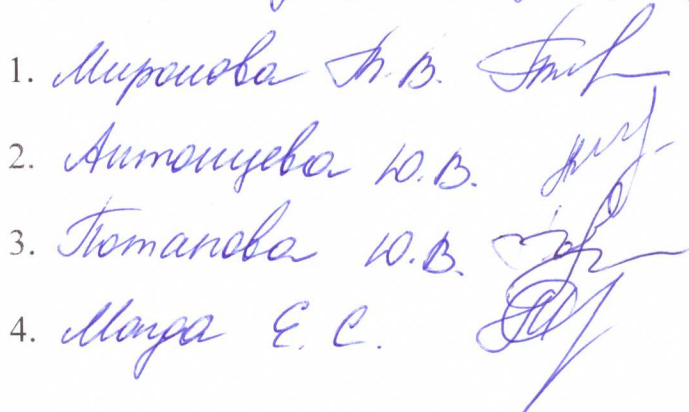 1. Миронова Т. В.
2. Антонцева Ю. В.
3. Потапова Ю. В.
4. Магда Е. С.